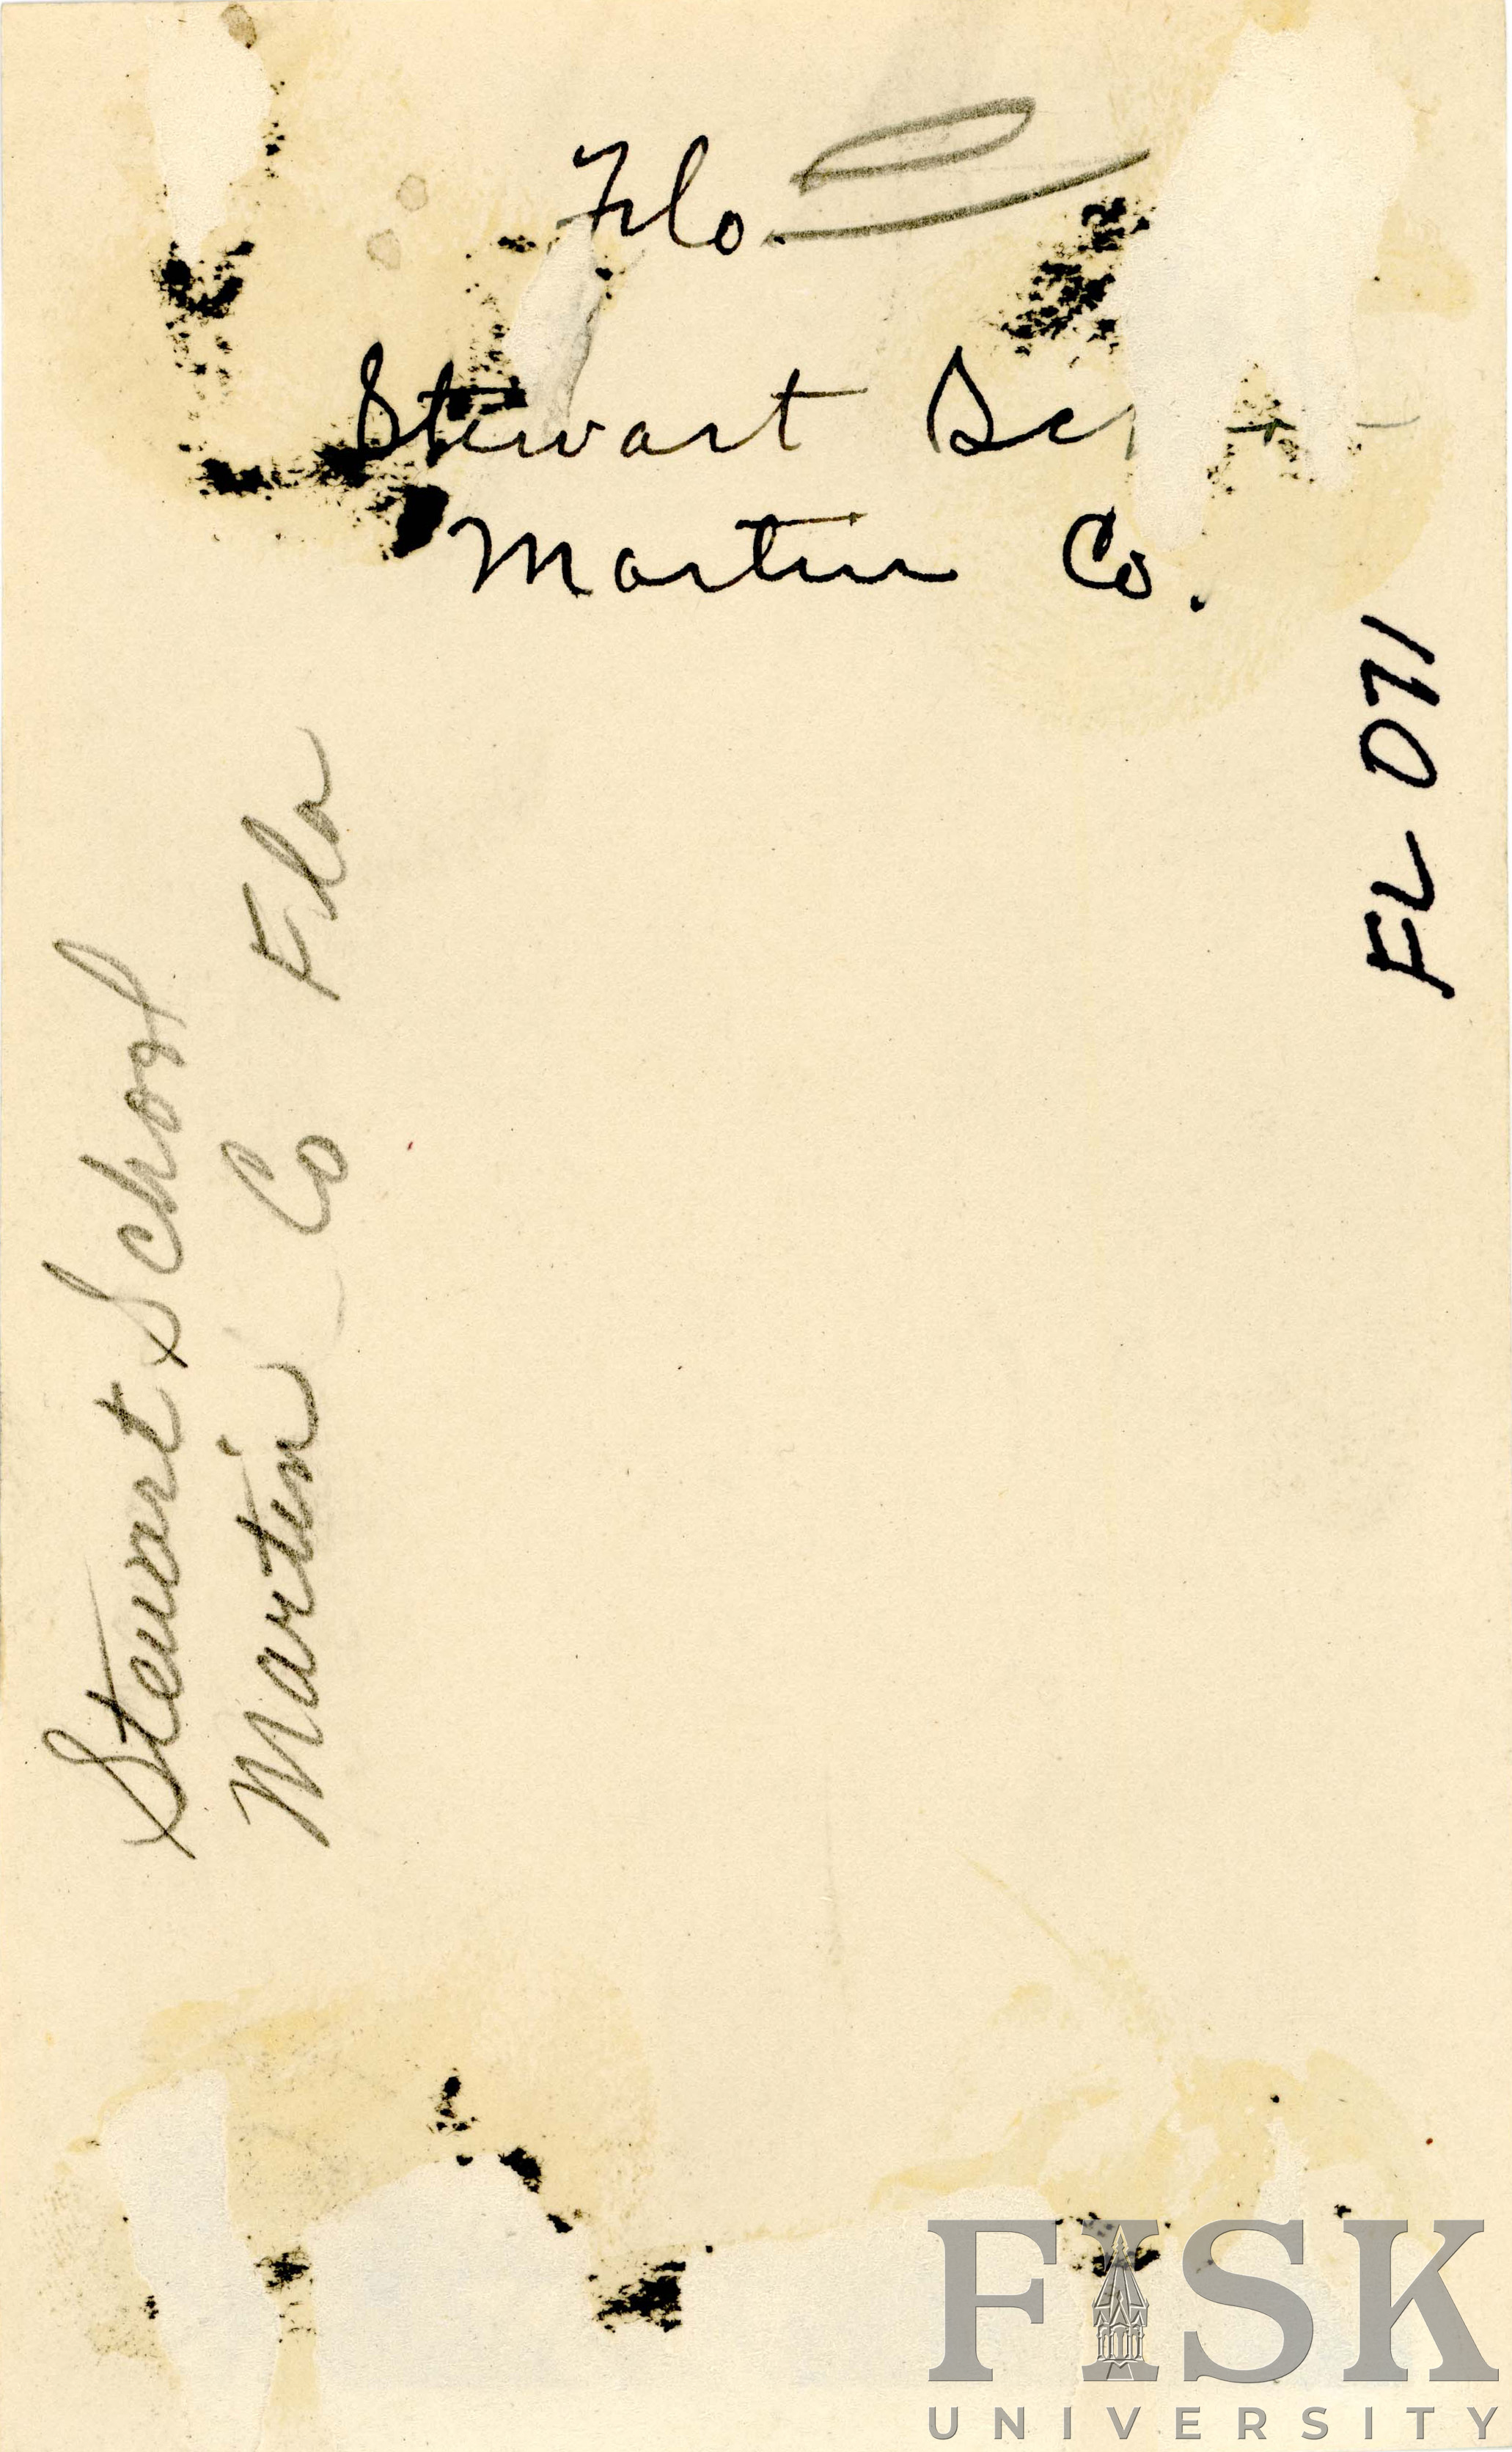 Fla.
Stewart Sc
Martin Co.
FL 071
Stewart School
Martin Co Fla
FISK
UNIVERSITY